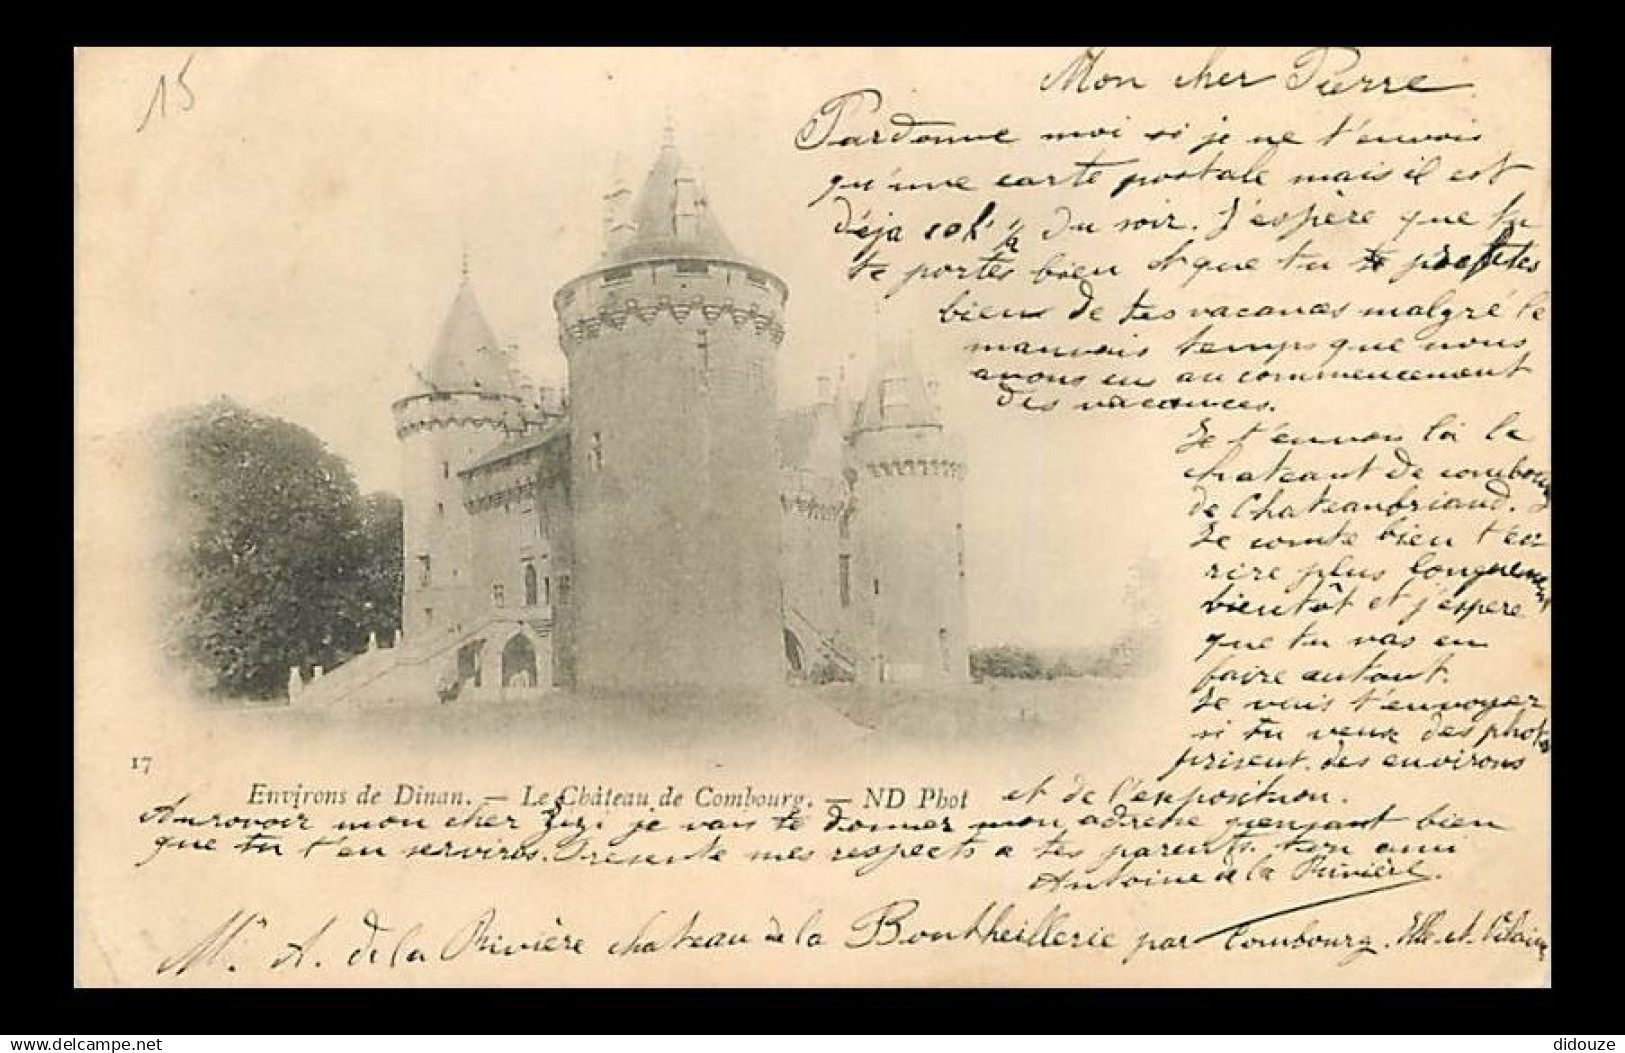 15
Mon cher Pierre
Pardonne moi si je ne t'envois
qu'une carte postale mais il est
déja 10h ½ du soir. J'espère que tu
te portes bien et que tu profites
bien de tes vacances malgré le
mauvais temps que nous
avons eu au commencement
des vacances.
Je t'envoi ici le
chateaut de combourg
de Chateaubriand.
Je compte bien t'éc
rire plus longuement
bientôt et j'espere
que tu vas en
faire autant.
Je vais t'envoyer
si tu veux des photos
prisent. des environs
17
Environs de Dinan. — Le Château de Combourg. — ND Phot
et de l'exposition.
Aurovoir mon cher Zizi je vais te donner mon adresse pensant bien
que tu t'en serviras. Présente mes respects a tes parents. ton ami
Antoine de la Rivière.
Mr. A. de la Rivière chateau de la Bontheillerie par Combourg. Ille-et-Vilaine
delcampe.net
didouze